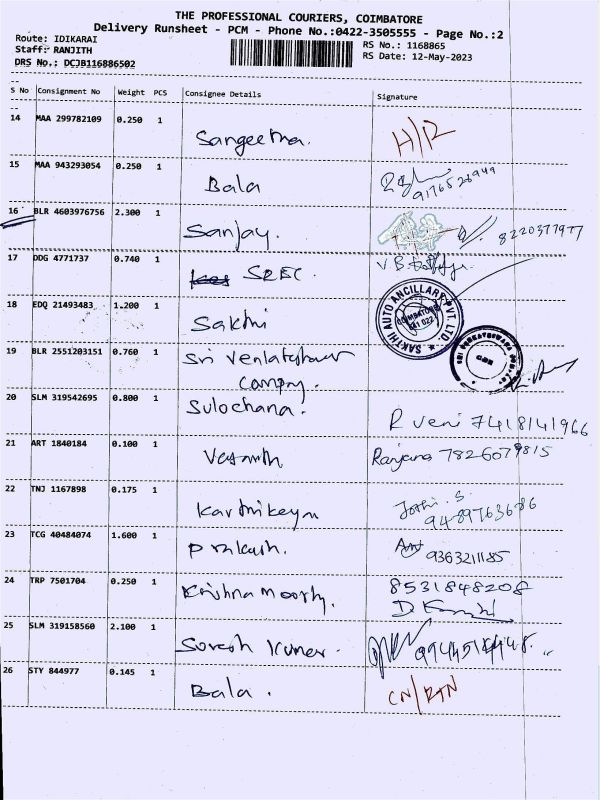 THE PROFESSIONAL COURIERS, COIMBATORE
Delivery Runsheet - PCM - Phone No.:0422-3505555 - Page No.:2
Route: IDIKARAI
Staff: RANJITH
DRS No.: DCJB116886502
RS No.: 1168865
RS Date: 12-May-2023
S No Consignment No Weight PCS Consignee Details Signature
14 MAA 299782109 0.250 1
Sangeetha. H/R
15 MAA 943293054 0.250 1
Bala
16 BLR 4603976756 2.300 1
Sanjay. 8220377977
17 DDG 4771737 0.740 1
SREC. V.B.
18 EDQ 21493483 1.200 1
Sakthi
SAKTHI AUTO ANCILLARY PVT. LTD.
COIMBATORE
641 022
19 BLR 2551203151 0.760 1
Sri Venkateshwar
Company.
20 SLM 319542695 0.800 1
Sulochana. R veni 7418141966
21 ART 1840184 0.100 1
Vasanth Ranjana 7826079815
22 TNJ 1167898 0.175 1
Karthikeyan 9489763686
23 TCG 40484074 1.600 1
Prakash. 9363211185
24 TRP 7501704 0.250 1
Krishna Moorthy. 8531848208
25 SLM 319158560 2.100 1
Suresh Kumar.
26 STY 844977 0.145 1
Bala. CN/RTN